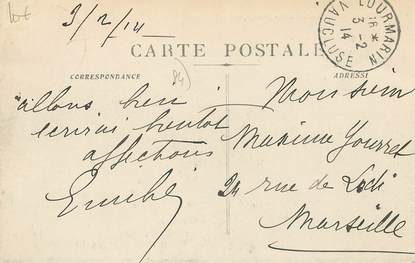 3/2/14
LOURMARIN
16 *
3-2
14
VAUCLUSE
CARTE POSTALE
CORRESPONDANCE
ADRESSE
84
allons bien
écrirai bientot
affections
Emilie
Monsieur
Maxime Yourret
24 rue de Lodi
Marseille